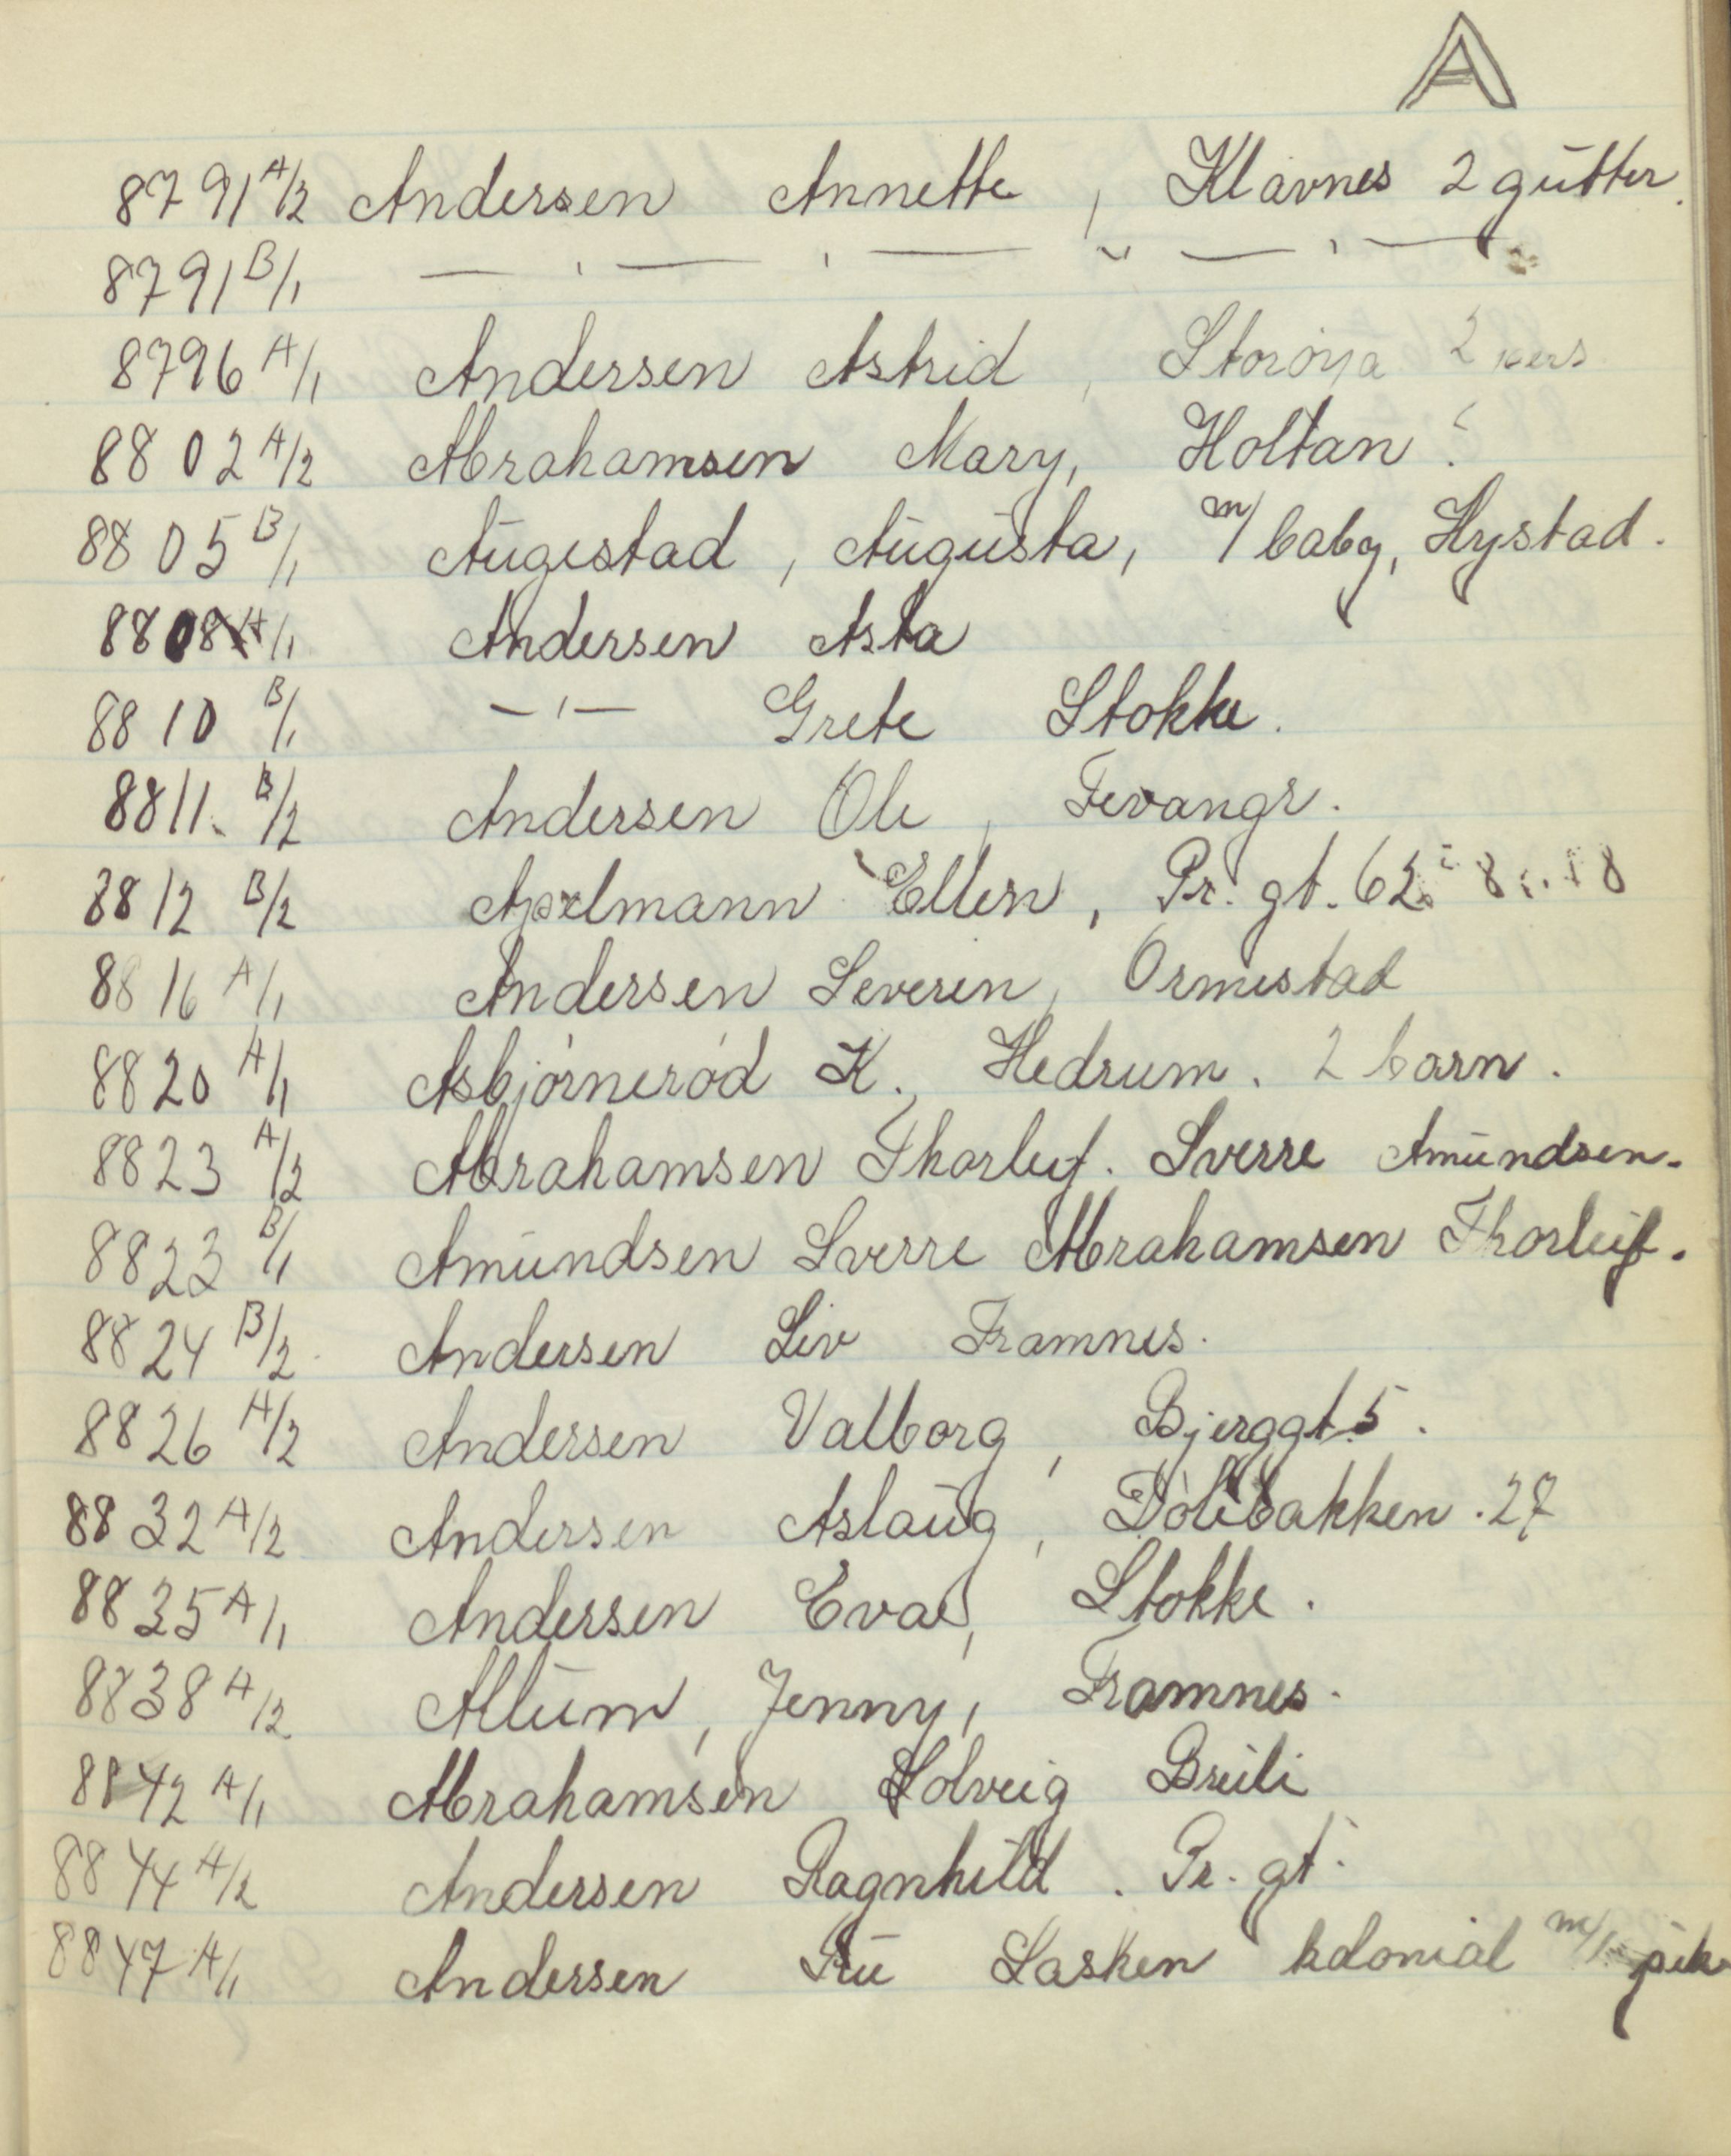 A
8791 A/2 Andersen Annette, Klavnes 2 gutter.
8791 B/1 — ' — ' — " — ' —
8796 A/1 Andersen Astrid, Storøya 2 pers
8802 A/2 Abrahamsen Mary, Holtan ?
8805 B/1 Augestad, Augusta, m/ baby, Hystad.
8808 A/1 Andersen Asta
8810 B/1 — ' — Grete Stokke.
8811. B/2 Andersen Ole, Fevangr.
8812 B/2 Ellen, Pr. gt. 62.
8816 A/1 Andersen Severin, Ormestad
8820 A/1 Asbjørnerød K., Hedrum. 2 barn.
8823 A/2 Abrahamsen Thorleif. Sverre Amundsen.
8823 B/1 Amundsen Sverre Abrahamsen Thorleif.
8824 B/2 Andersen Liv Framnes.
8826 A/2 Andersen Valborg, Bjerggt 5.
8832 A/2 Andersen Aslaug, Dølebakken. 27
8835 A/1 Andersen Eva, Stokke.
8838 A/2 Allum, Jenny, Framnes.
8842 A/1 Abrahamsen Solveig Breili
8844 A/2 Andersen Ragnhild. Pr. gt.
8847 A/1 Andersen Lasken kolonial m/ pik